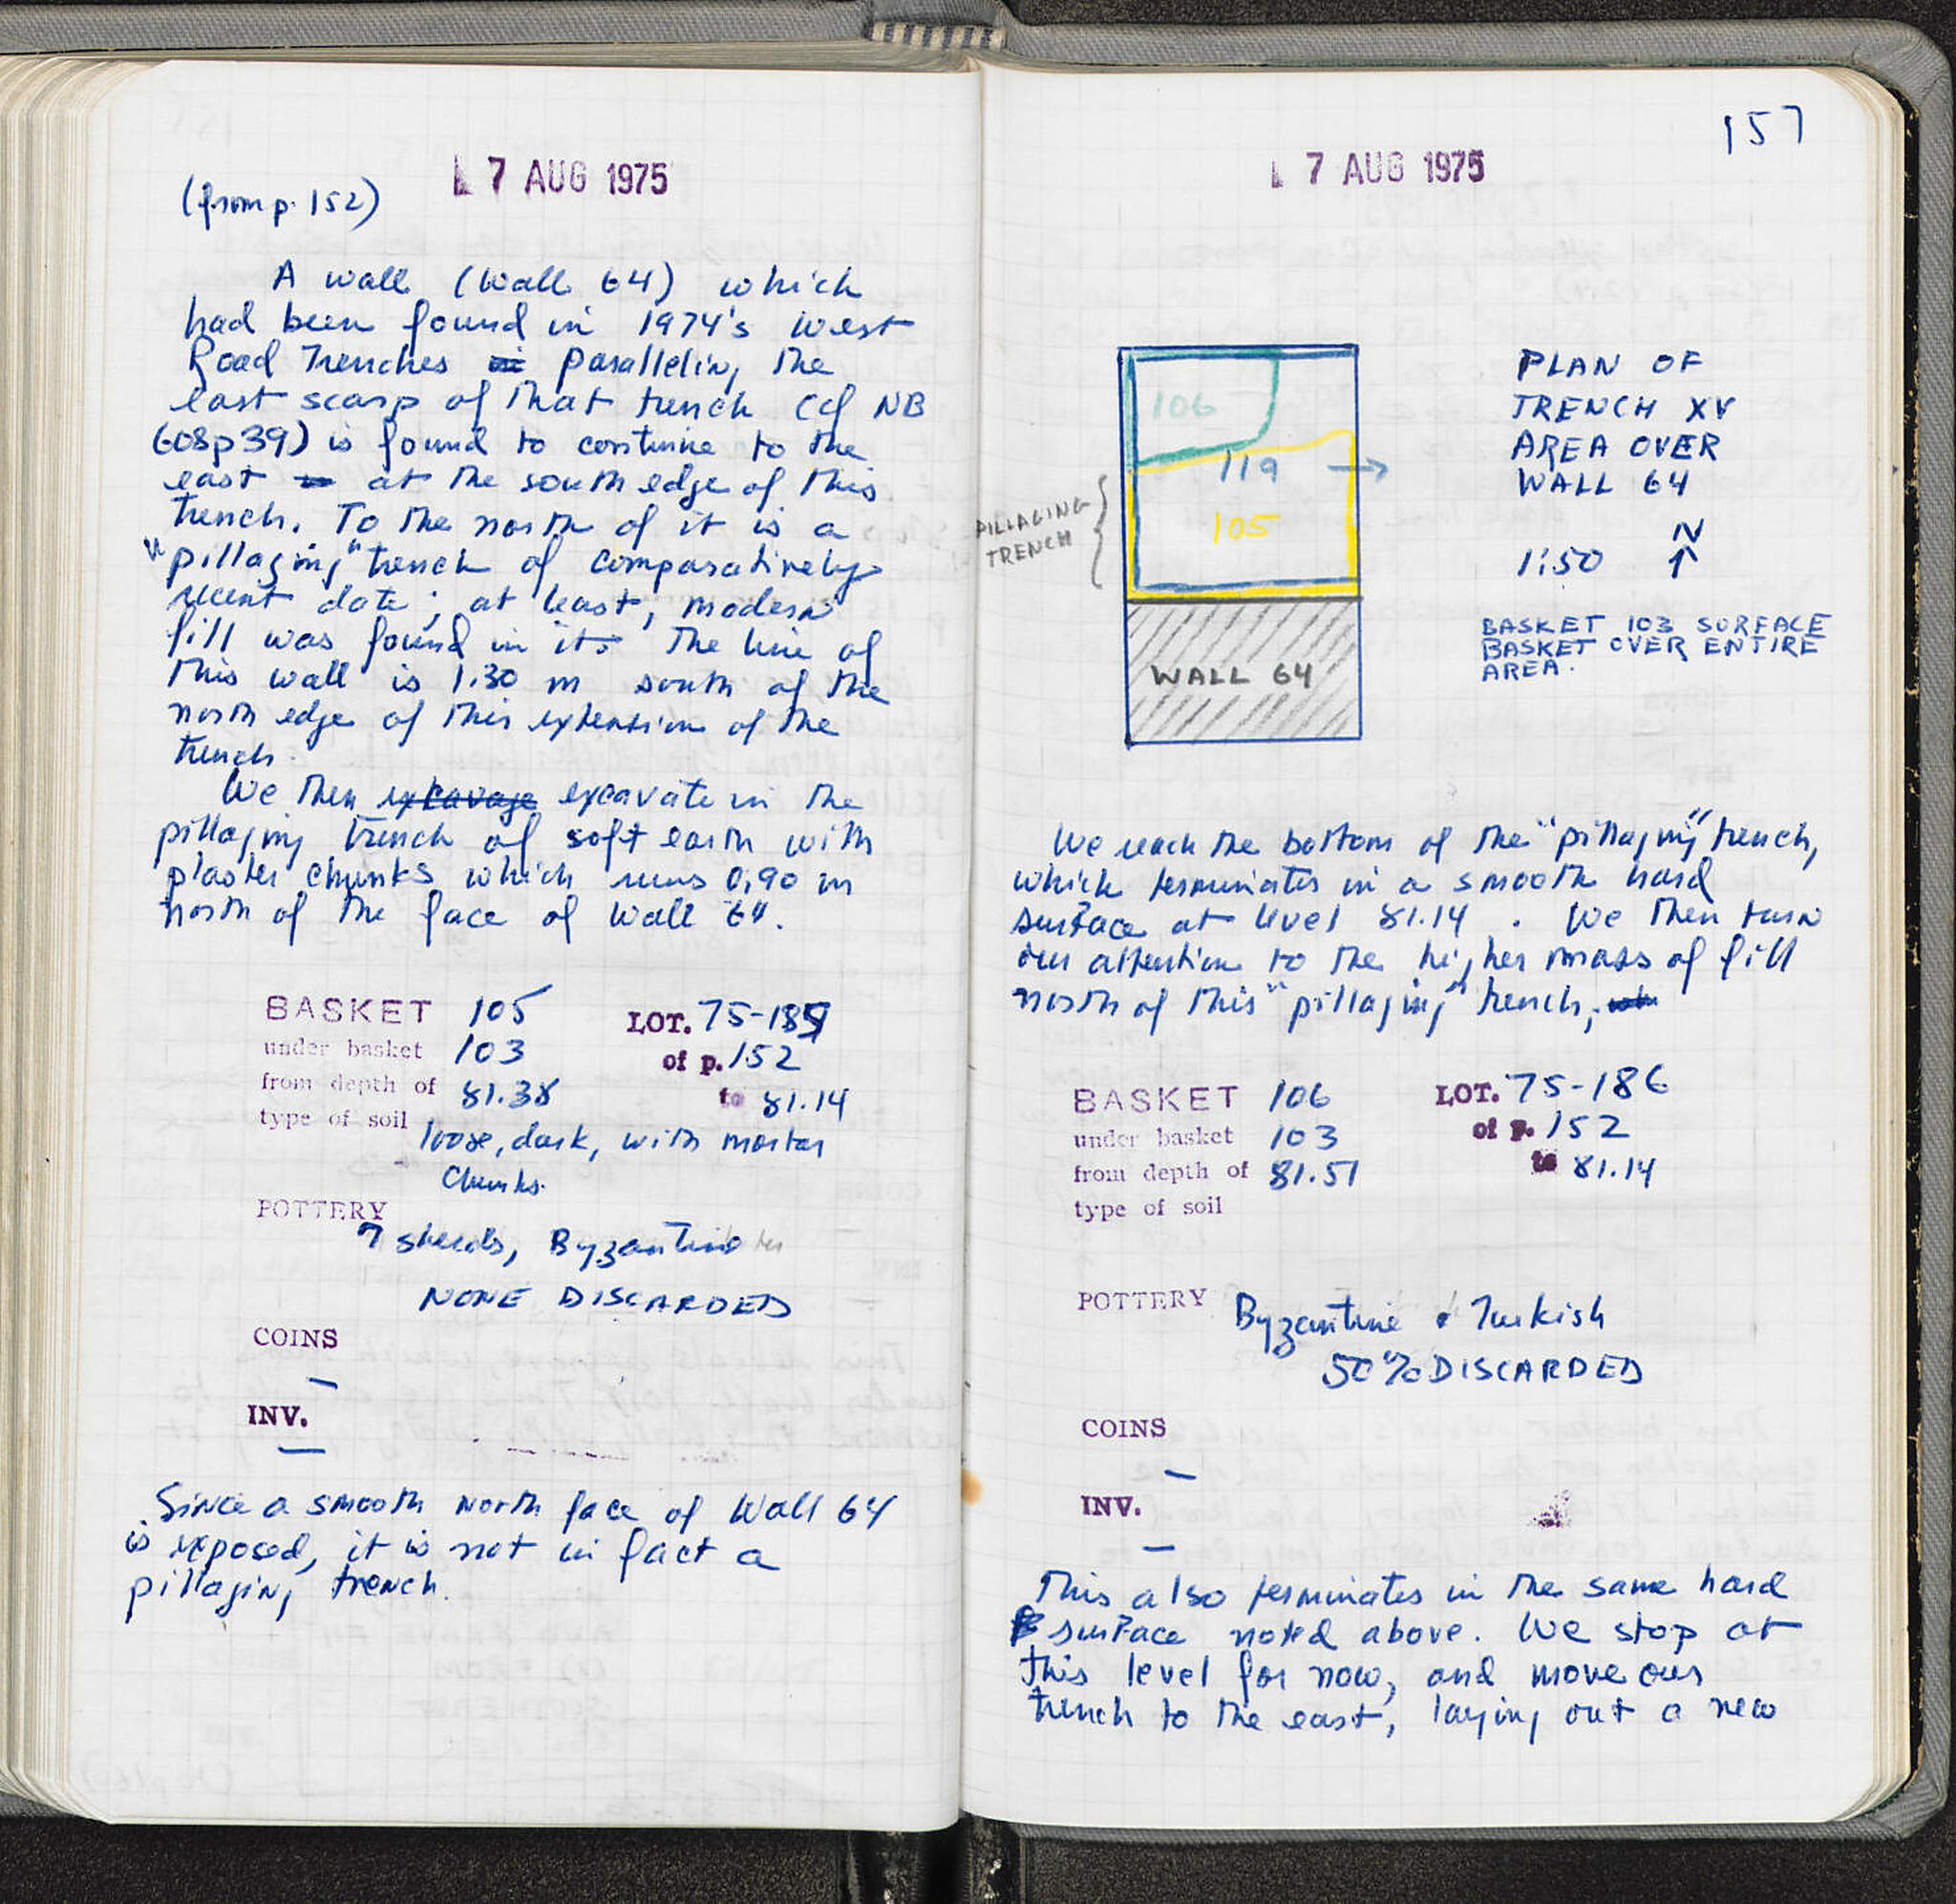 7 AUG 1975
(from p. 152)
A wall (Wall 64) which
had been found in 1974's West
Road Trenches in paralleling the
east scarp of that trench (cf NB
608 p 39) is found to continue to the
east at the south edge of this
trench. To the north of it is a
"pillaging" trench of comparatively
recent date; at least, modern
fill was found in it. The line of
this wall is 1.30 m south of the
north edge of this extension of the
trench.
We then excavage excavate in the
pillaging trench of soft earth with
plaster chunks which runs 0,90 m
north of the face of Wall 64.
BASKET 105 LOT. 75-185
under basket 103 of p. 152
from depth of 81.38 to 81.14
type of soil loose, dark, with mortar
chunks.
POTTERY
7 sherds, Byzantine
NONE DISCARDED
COINS
—
INV.
—
Since a smooth north face of Wall 64
is exposed, it is not in fact a
pillaging trench.
157
7 AUG 1975
106
119
105
PILLAGING
TRENCH
WALL 64
PLAN OF
TRENCH XV
AREA OVER
WALL 64
N
1:50 ↑
BASKET 103 SURFACE
BASKET OVER ENTIRE
AREA.
We reach the bottom of the "pillaging" trench,
which terminates in a smooth hard
surface at level 81.14 . We then turn
our attention to the higher mass of fill
north of this "pillaging" trench,
BASKET 106 LOT. 75-186
under basket 103 of p. 152
from depth of 81.51 to 81.14
type of soil
POTTERY Byzantine & Turkish
50% DISCARDED
COINS
—
INV.
—
This also terminates in the same hard
surface noted above. We stop at
this level for now, and move our
trench to the east, laying out a new